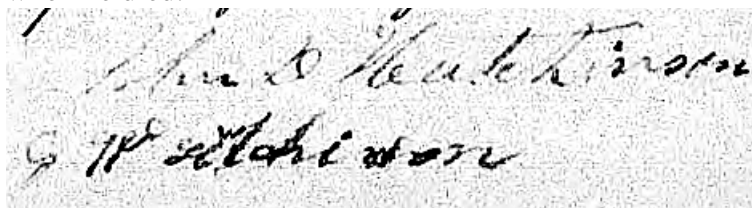 John D Hutchinson
G W Atchinson